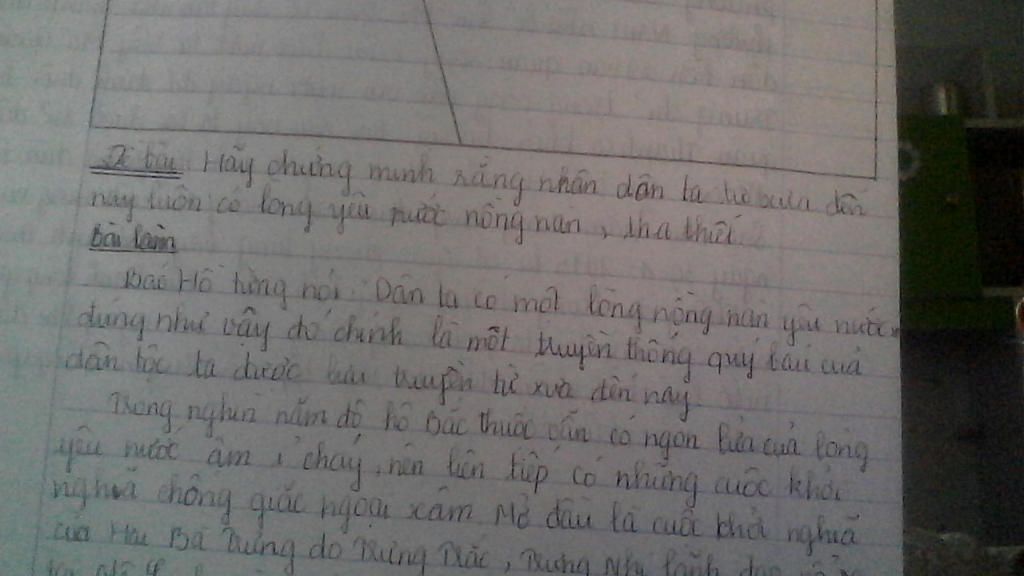 Đề bài Hãy chứng minh rằng nhân dân ta từ xưa đến
nay luôn có lòng yêu nước nồng nàn, tha thiết.
Bài làm
Bác Hồ từng nói: Dân ta có một lòng nồng nàn yêu nước"
đúng như vậy đó chính là một truyền thống quý báu của
dân tộc ta được lưu truyền từ xưa đến nay.
Trong nghìn năm đô hộ Bắc thuộc vẫn có ngọn lửa của lòng
yêu nước âm ỉ cháy, nên liên tiếp có những cuộc khởi
nghĩa chống giặc ngoại xâm Mở đầu là cuộc khởi nghĩa
của Hai Bà Trưng do Trưng Trắc, Trưng Nhị lãnh đạo